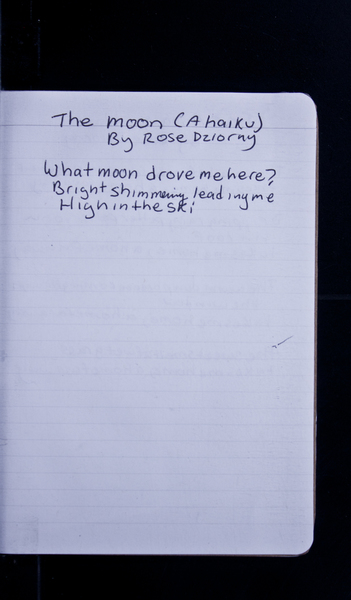 The moon (A haiku)
By Rose Dziorny
What moon drove me here?
Bright shimmering, leading me
High in the ski